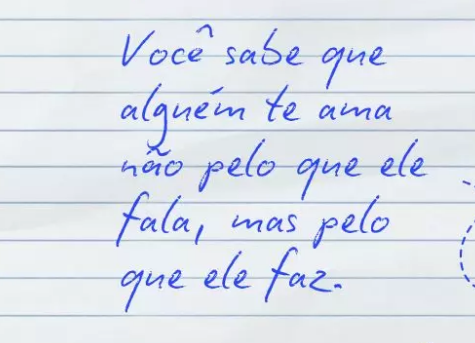 Você sabe que
alguém te ama
não pelo que ele
fala, mas pelo
que ele faz.